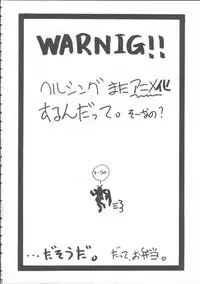 WARNIG!!
ヘルシングまたアニメ化
するんだって。そーなの？
そーなの
…だそうだ。
だって、お弁当。